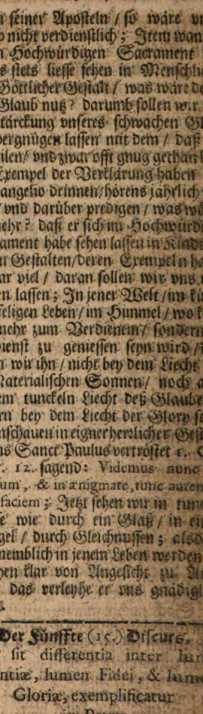 seiner Aposteln / so wäre un
nicht verdienstlich; Item wan
Hochwürdigen Sacrament
stets liesse sehen in Menschli
Göttlicher Gestalt / was wäre de
Glaub nutz? darumb sollen wir
tärckung unseres schwachen Gl
vergnügen lassen mit dem / daß
ilen / und zwar offt gnug gethan
Exempel der Verklärung haben
angelio drinnen / hörens jährlich
und darüber predigen / was w
mehr? daß er sich im Hochwürdi
ament habe sehen lassen in Kinds
Gestalten / deren Exempeln ha
ar viel / daran sollen wir uns
en lassen; In jener Welt / im kü
seligen Leben / im Himmel / wo k
mehr zum Verdienen / sondern
ienst zu geniessen seyn wird /
wir ihn / nicht bey dem Liecht
Materialischen Sonnen / noch a
em tunckeln Liecht deß Glaube
rn bey dem Liecht der Glory
nschauen in eigner herrlicher Gest
ns Sanct Paulus vertröstet 1. C
. 12. sagend: Videmus nunc
um, & in ænigmate, tunc autem
faciem; Jetzt sehen wir in tunc
wie durch ein Glaß / in ei
gel / durch Gleichnussen; also
nemblich in jenem Leben werden
hen klar von Angesicht zu A
das verleyhe er uns gnädig
Der Fünffte (15.) Discurs.
sit differentia inter lum
ntiæ, lumen Fidei, & lume
Gloriæ, exemplificatur